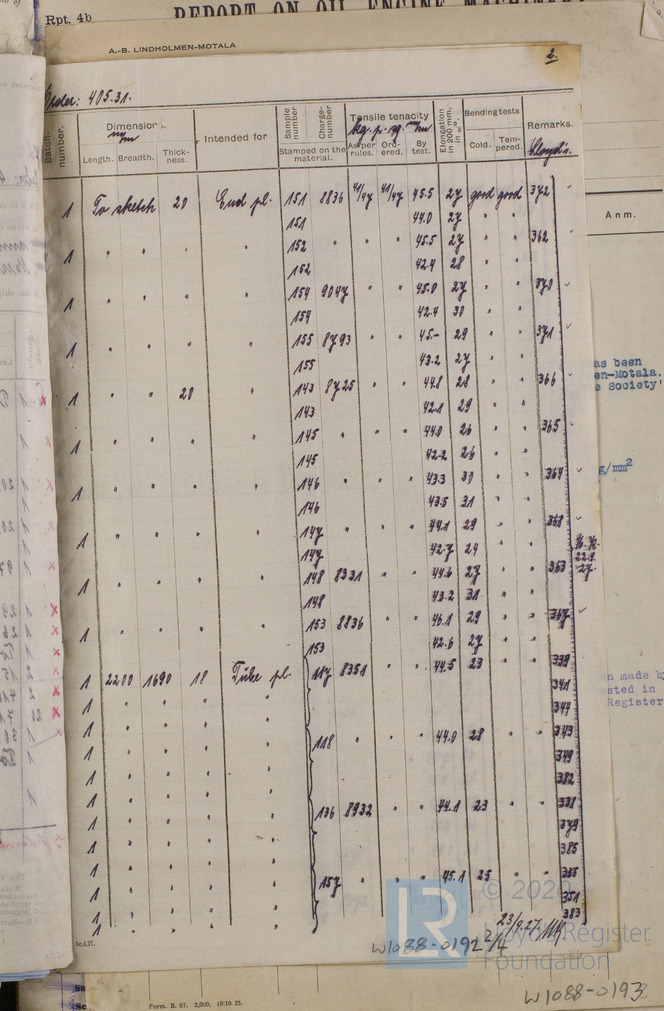 Rpt. 4b
REPORT ON OIL ENGINE
A.-B. LINDHOLMEN-MOTALA
2.
Order: 405.31.
Batch-number. Dimension. mm Intended for Sample number Charge-number Tensile tenacity kg. p. sq. mm Elongation in 200 mm. in %. Bending tests Remarks. Lloyd's.
Length. Breadth. Thick-ness. Stamped on the material. As per rules. Ord-ered. By test. Cold. Tem-pered.
1 To sketch 20 End pl. 151 8836 41/47 41/47 45.5 27 good good 372
151 44.0 27 " "
1 " " " " 152 " " " 45.5 27 " " 362
152 42.4 28 " "
1 " " " " 154 9047 " " 45.0 27 " " 370
154 42.4 30 " "
1 " " " " 155 8793 " " 45.- 29 " " 371
155 43.2 27 " "
1 " " 20 " 143 8725 " " 44.8 28 " " 366
143 42.1 29 " "
1 " " " " 145 " " " 44.0 26 " " 365
145 42.2 26 " "
1 " " " " 146 " " " 43.3 30 " " 364
146 43.5 31 " "
1 " " " " 147 " " " 44.1 29 " " 368
147 42.7 24 " "
1 " " " " 148 8331 " " 44.6 27 " " 363
148 43.2 31 " "
1 " " " " 153 8836 " " 46.1 29 " " 367
153 42.6 27 " "
1 2200 1690 18 Tube pl. 117 8351 " " 44.5 23 " " 339
1 " " " " 341
1 " " " " 344
1 " " " " 118 " " " 44.0 28 " " 343
1 " " " " 349
1 " " " " 382
1 " " " " 136 8932 " " 44.1 23 " " 338
1 " " " " 379
1 " " " " 385
1 " " " " 157 " " " 45.1 25 " " 355
1 " " " " 351
1 " " " " 383
23/9.27
5c.4.27.
W1088-0192 2/4
Form. B. 67. 2,000. 10/10 25.
W1088-0193
Anm.
as been
en-Motala.
e Society'
g/mm²
n made by
sted in
Register
LR
© 2020
Lloyd's Register
Foundation